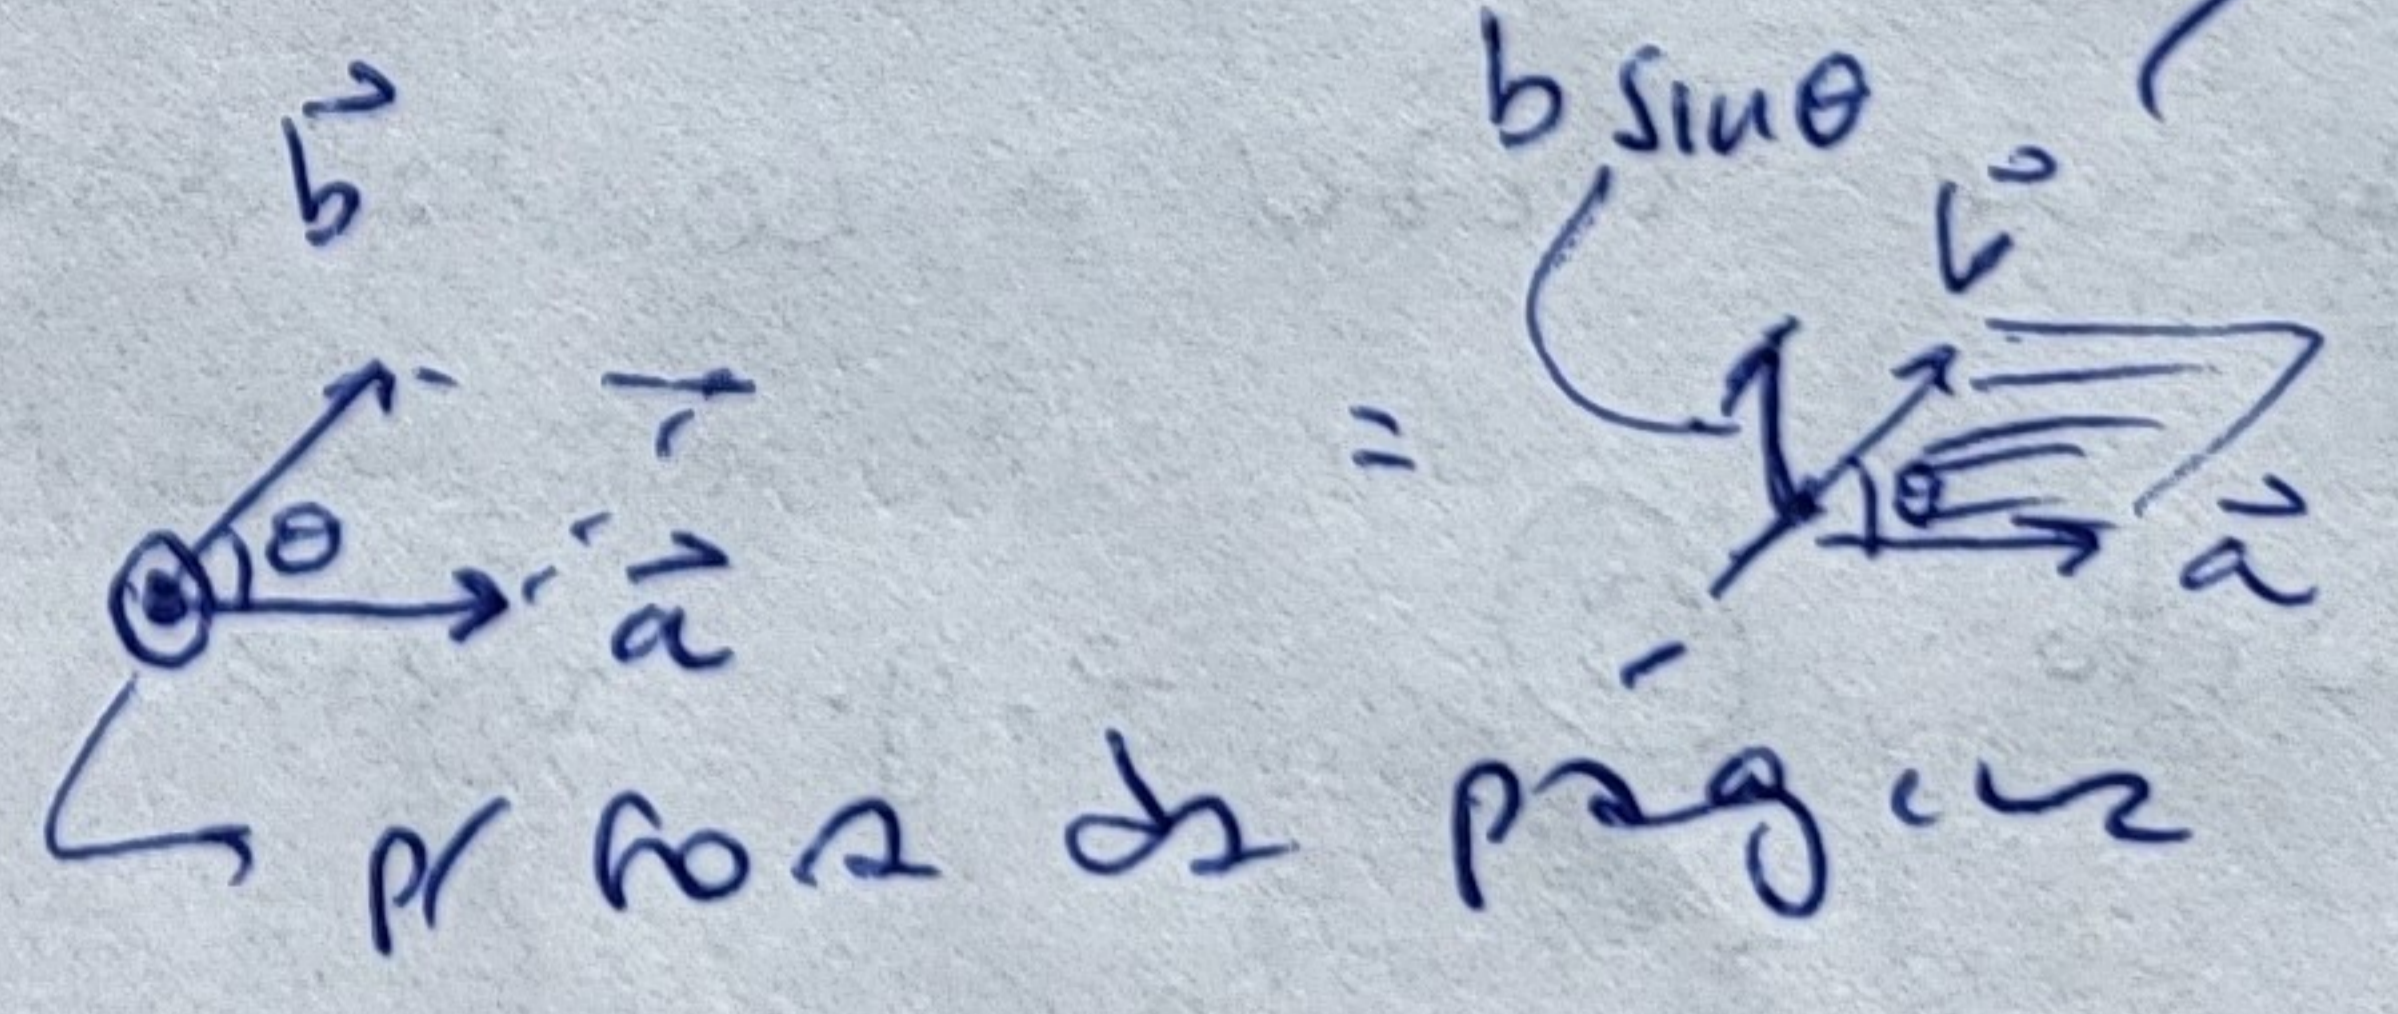 b sin θ
b⃗
b⃗
θ
θ
a⃗
=
a⃗
p/ fora da página